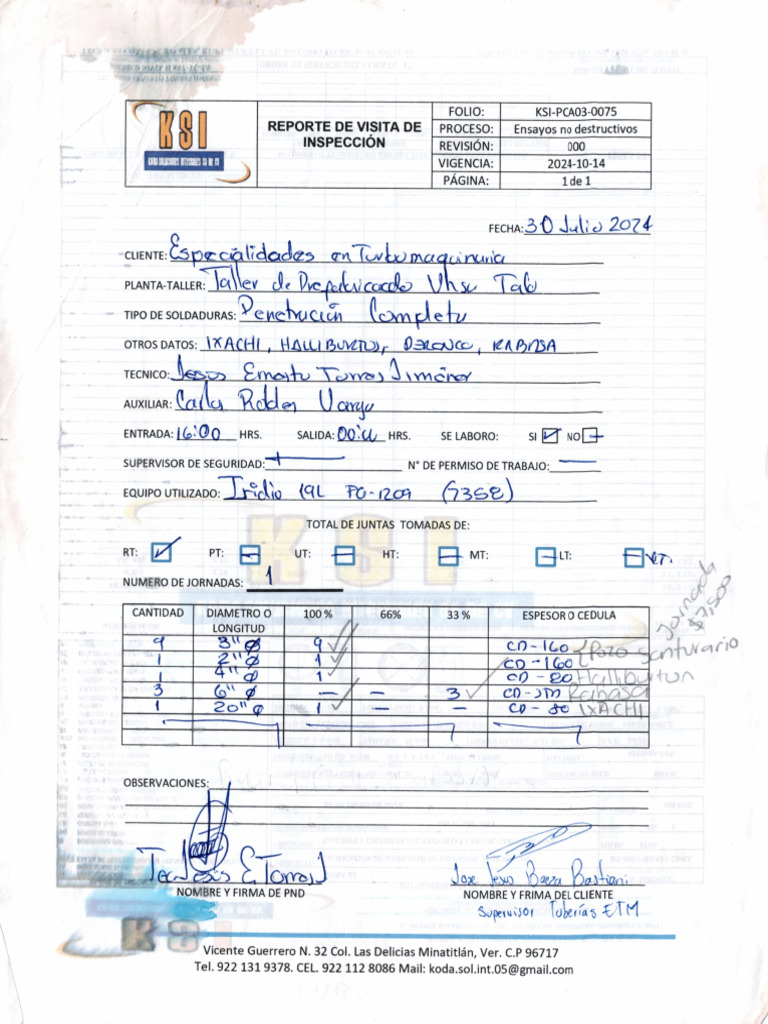 KSI
KODA SOLUCIONES INTEGRALES SA DE CV
REPORTE DE VISITA DE
INSPECCIÓN
FOLIO: KSI-PCA03-0075
PROCESO: Ensayos no destructivos
REVISIÓN: 000
VIGENCIA: 2024-10-14
PÁGINA: 1 de 1
FECHA: 30 Julio 2024
CLIENTE: Especialidades en Turbomaquinaria
PLANTA-TALLER: Taller de Prefabricado Vhsa Tab
TIPO DE SOLDADURAS: Penetración Completa
OTROS DATOS: IXACHI, HALLIBURTON, , RABASA
TECNICO: Jesus Ernesto Torres Jiménez
AUXILIAR: Carlos Vargas
ENTRADA: 16:00 HRS. SALIDA: 00:00 HRS. SE LABORO: SI NO
SUPERVISOR DE SEGURIDAD: — N° DE PERMISO DE TRABAJO: —
EQUIPO UTILIZADO: Iridio 192 PG-1209 (7358)
TOTAL DE JUNTAS TOMADAS DE:
RT: PT: UT: HT: MT: LT:
NUMERO DE JORNADAS: 1
jornada
$7,500
CANTIDAD DIAMETRO O LONGITUD 100 % 66% 33 % ESPESOR O CEDULA
9 3" Ø 9 CD-160 Pozo Santuario
1 2" Ø 1 CD-160
1 4" Ø 1 CD-80 Halliburton
3 6" Ø — — 3 CD-STD Rabasa
1 20" Ø 1 — — CD-80 IXACHI
OBSERVACIONES:
Tec Jesus E Torres J
NOMBRE Y FIRMA DE PND
Jose Jesus Baeza Bastiani
NOMBRE Y FRIMA DEL CLIENTE
Supervisor Tuberías ETM
KSI
Vicente Guerrero N. 32 Col. Las Delicias Minatitlán, Ver. C.P 96717
Tel. 922 131 9378. CEL. 922 112 8086 Mail: koda.sol.int.05@gmail.com